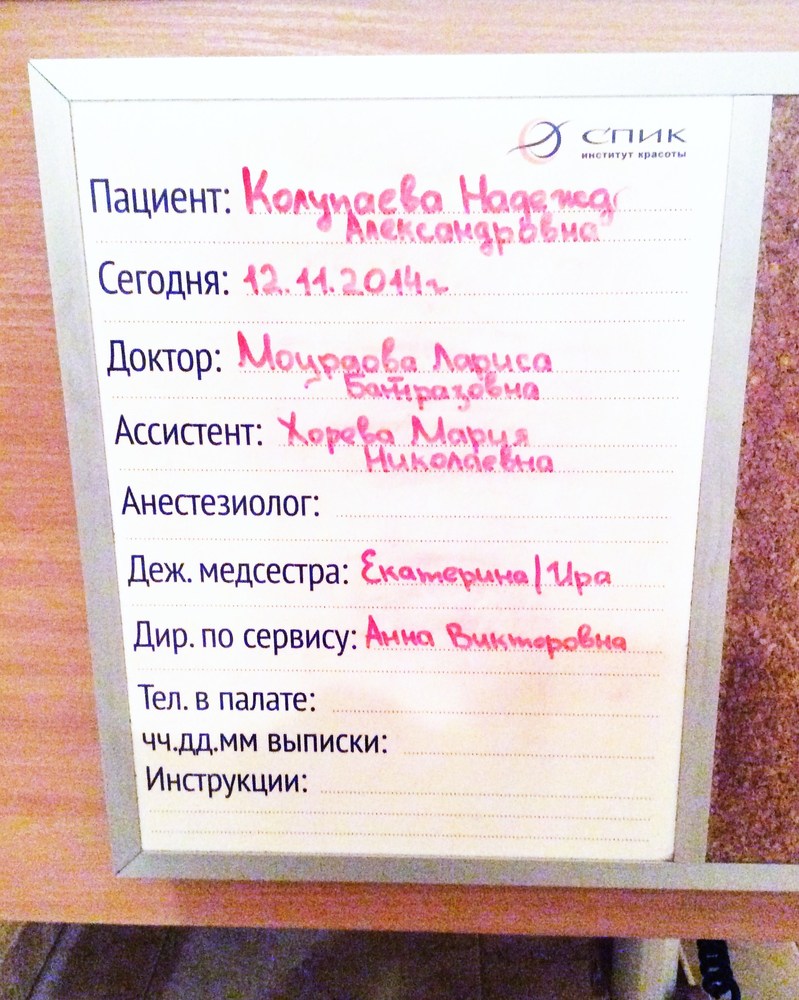 СПИК
институт красоты
Пациент: Колупаева Надежд
Александровна
Сегодня: 12.11.2014г
Доктор: Лариса
Батразовна
Ассистент: Хорева Мария
Николаевна
Анестезиолог:
Деж. медсестра: Екатерина/Ира
Дир. по сервису: Анна Викторовна
Тел. в палате:
чч.дд.мм выписки:
Инструкции: